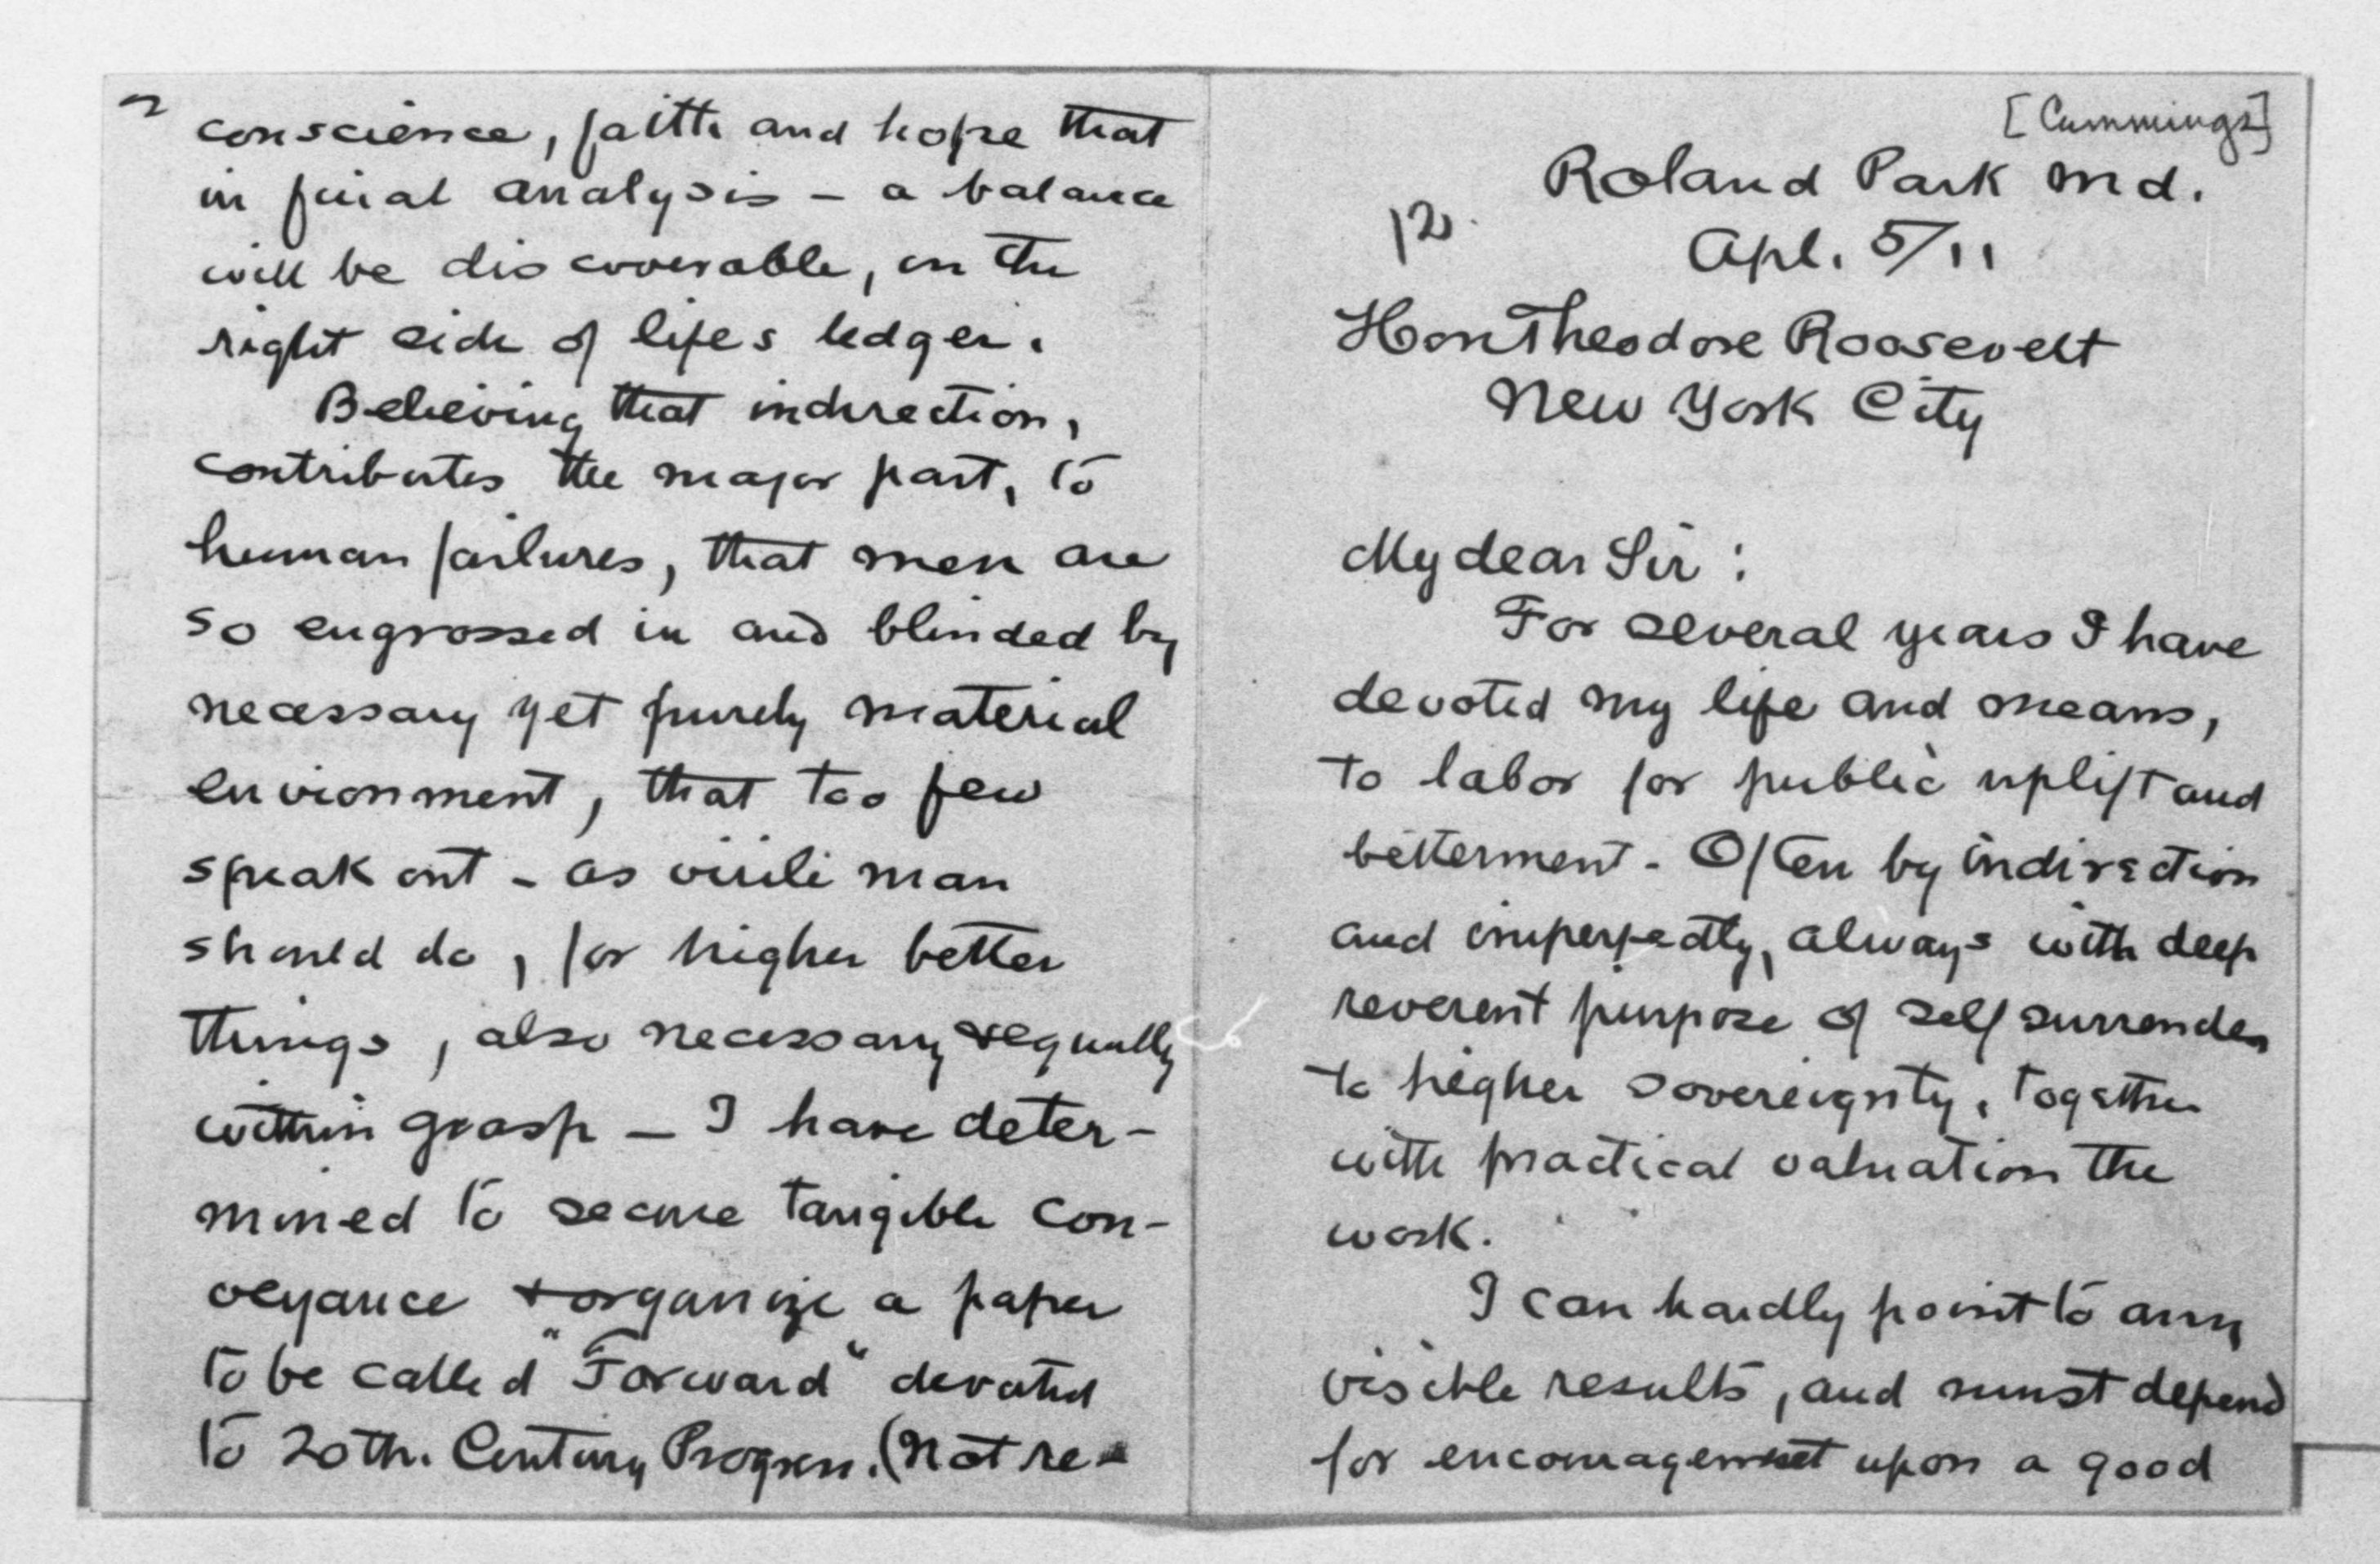 [Cummings]
Roland Park Md.
12.
Apl. 5/11
Hon Theodore Roosevelt
New York City
My dear Sir :
For several years I have
devoted my life and means,
to labor for public uplift and
betterment. Often by indirection
and imperfectly, always with deep
reverent purpose of self surrender
to higher sovereignty, together
with practical valuation the
work.
I can hardly point to any
visible results, and must depend
for encouragement upon a good
2
conscience, faith and hope that
in final analysis – a balance
will be discoverable, on the
right side of lifes ledger.
Believing that indirection,
contributes the major part, to
human failures, that men are
so engrossed in and blinded by
necessary yet purely material
envionment, that too few
speak out – as virile man
should do, for higher better
things, also necessary & equally
within grasp – I have deter-
mined to secure tangible con-
veyance & organize a paper
to be called "Forward" devoted
to 20th. Century Progress. (Not re-